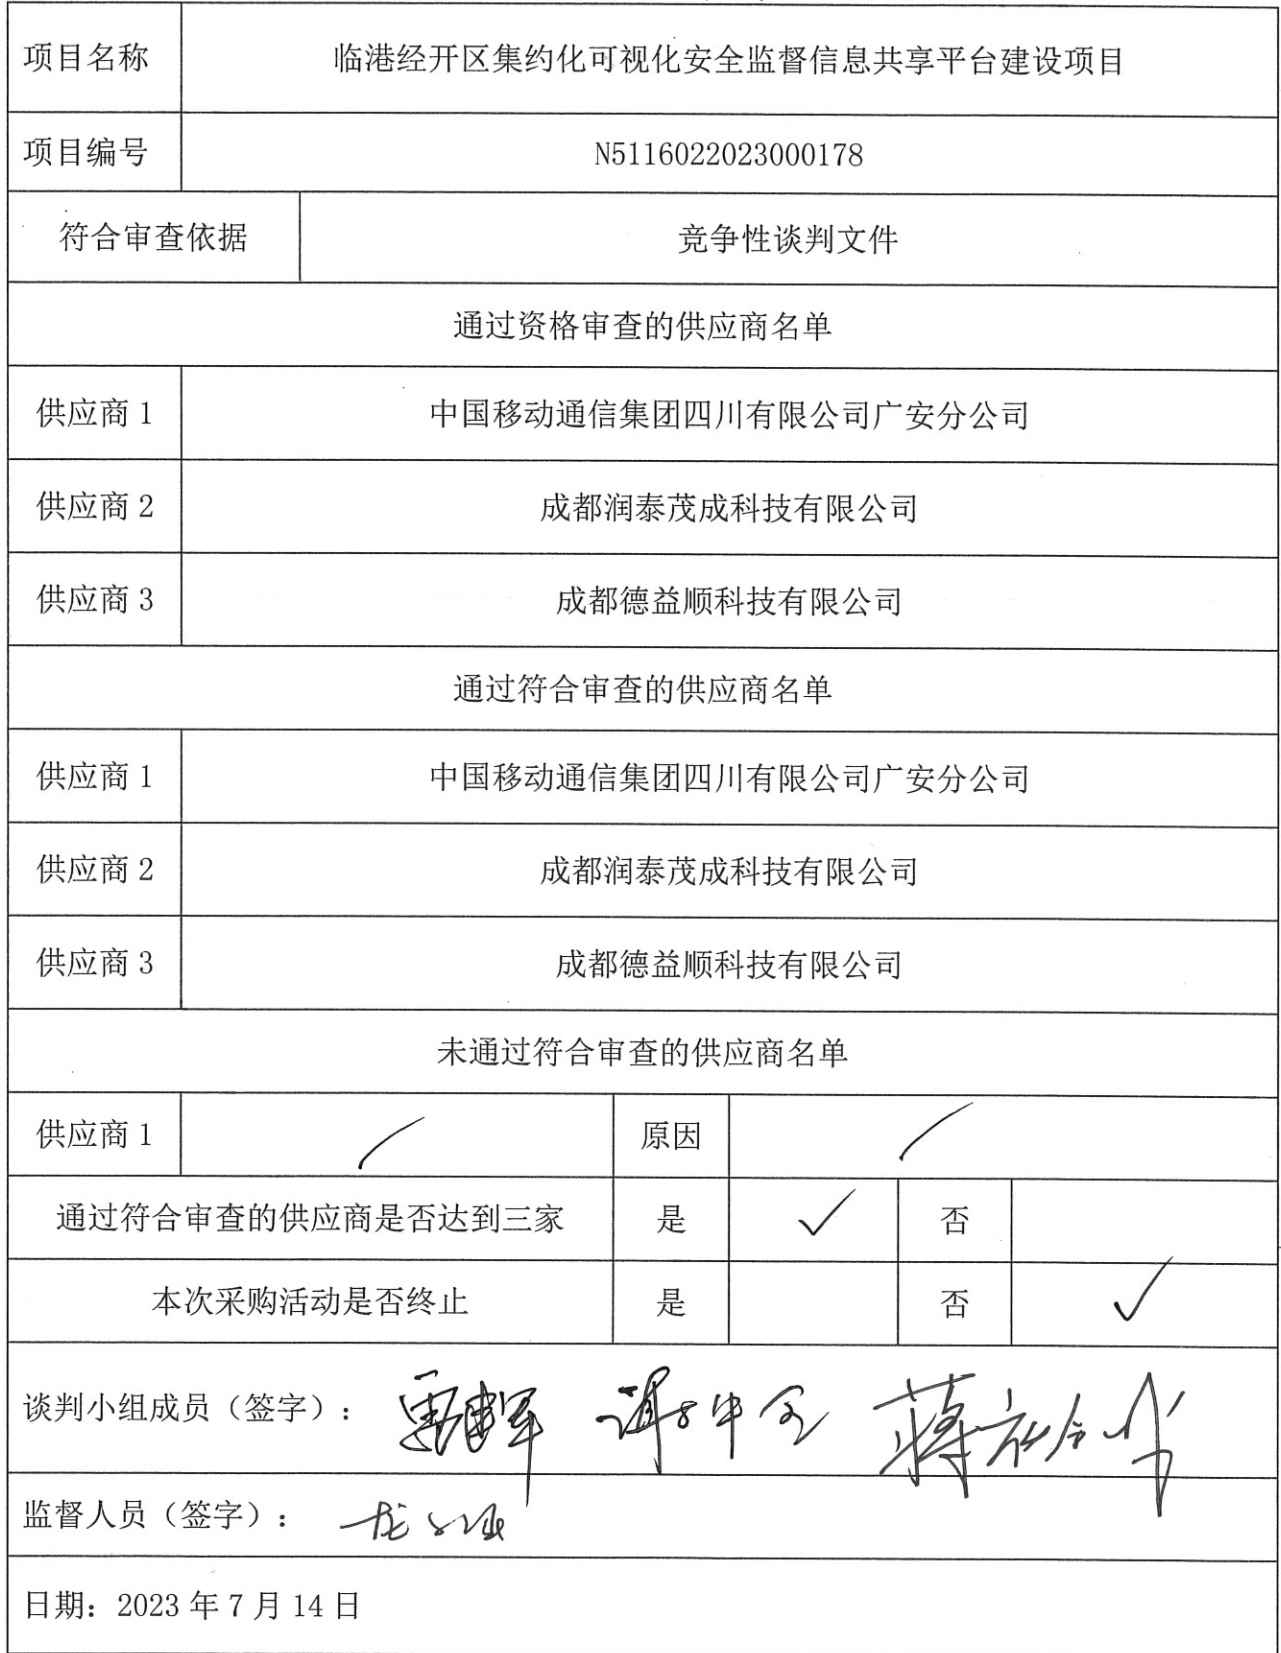 项目名称 临港经开区集约化可视化安全监督信息共享平台建设项目
项目编号 N5116022023000178
符合审查依据 竞争性谈判文件
通过资格审查的供应商名单
供应商 1 中国移动通信集团四川有限公司广安分公司
供应商 2 成都润泰茂成科技有限公司
供应商 3 成都德益顺科技有限公司
通过符合审查的供应商名单
供应商 1 中国移动通信集团四川有限公司广安分公司
供应商 2 成都润泰茂成科技有限公司
供应商 3 成都德益顺科技有限公司
未通过符合审查的供应商名单
供应商 1 / 原因 /
通过符合审查的供应商是否达到三家 是 ✓ 否
本次采购活动是否终止 是 否 ✓
谈判小组成员（签字）：
监督人员（签字）：
日期：2023 年 7 月 14 日